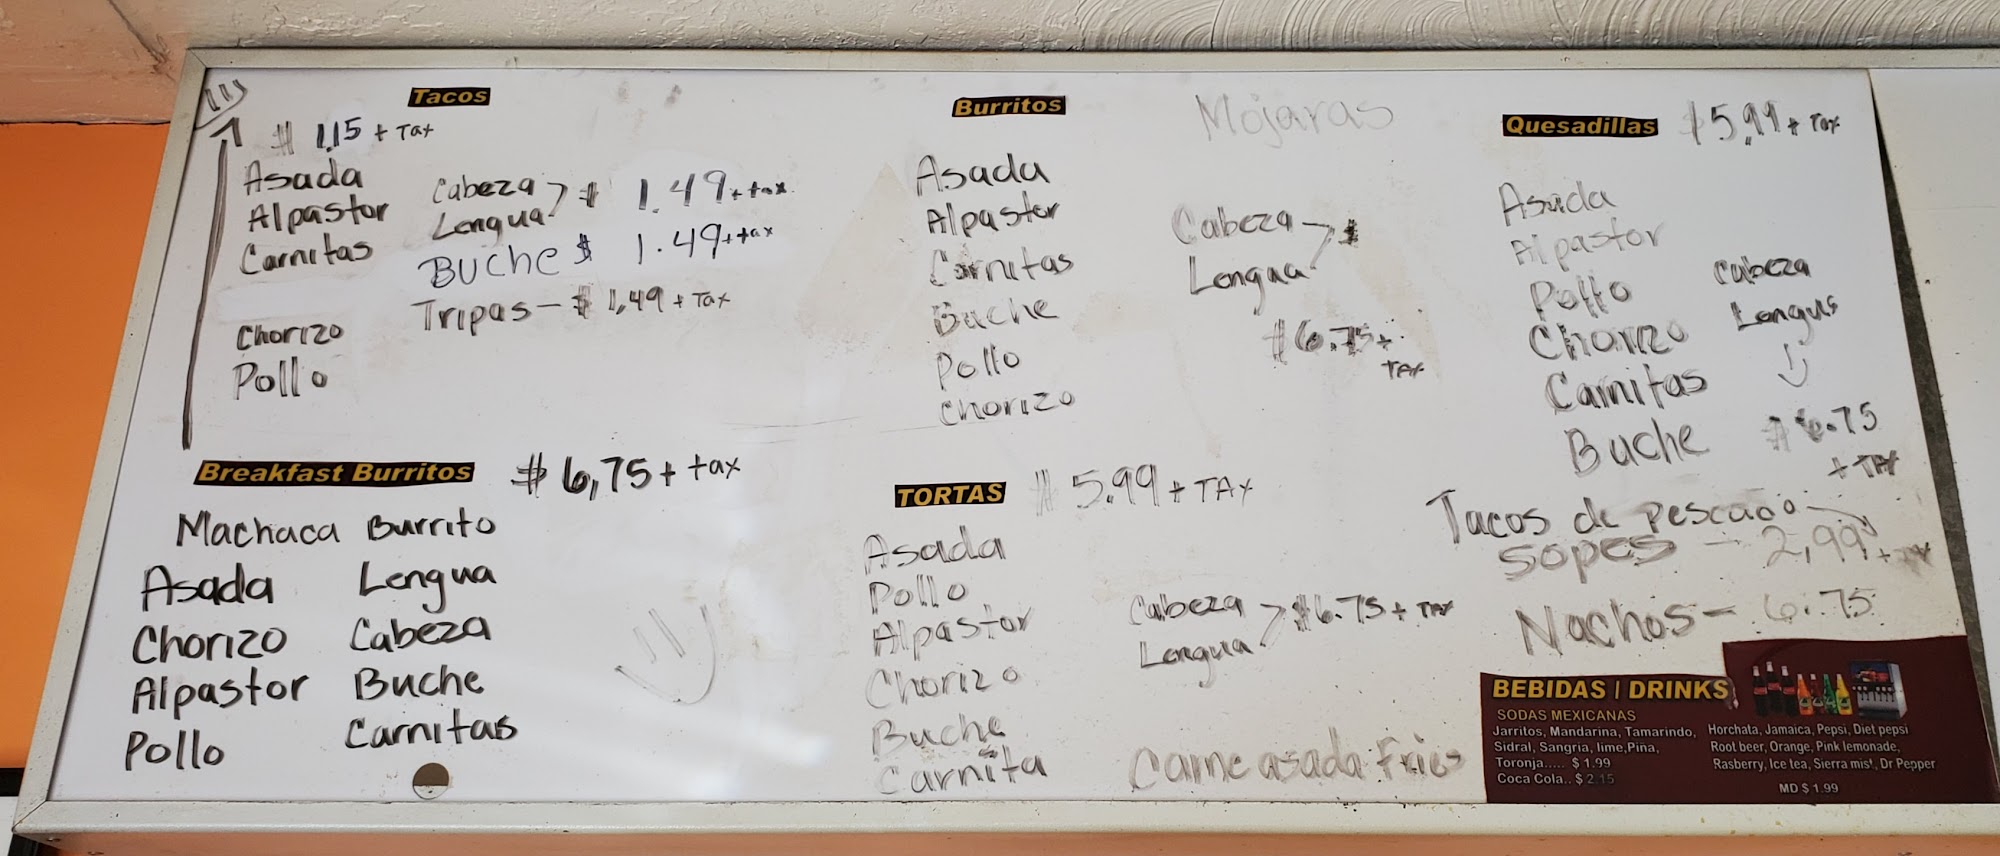 Tacos
$ 1.15 + Tax
Asada
Alpastor
Carnitas
Chorizo
Pollo
Cabeza
Lengua $ 1.49 + tax
Buche $ 1.49 + tax
Tripas - $ 1,49 + Tax
Breakfast Burritos $ 6,75 + tax
Machaca Burrito
Asada Lengua
Chorizo Cabeza
Alpastor Buche
Pollo Carnitas
Burritos
Asada
Alpastor
Carnitas
Buche
Pollo
Chorizo
Mojaras
Cabeza $
Lengua
$6.75 +
TAX
TORTAS $ 5.99 + TAX
Asada
Pollo
Alpastor
Chorizo
Buche
Carnita
Cabeza
Lengua $6.75 + TAX
Carne asada Fries
Quesadillas $5.99 + Tax
Asada
Alpastor
Pollo
Chorizo
Carnitas
Buche
Cabeza
Lengus
$6.75
+ TAX
Tacos de pescado
Sopes - 2,99 + TAX
Nachos - 6.75
BEBIDAS / DRINKS
SODAS MEXICANAS
Jarritos, Mandarina, Tamarindo,
Sidral, Sangria, lime,Piña,
Toronja..... $ 1.99
Coca Cola.. $ 2.15
Horchata, Jamaica, Pepsi, Diet pepsi
Root beer, Orange, Pink lemonade,
Rasberry, Ice tea, Sierra mist, Dr Pepper
MD $ 1.99